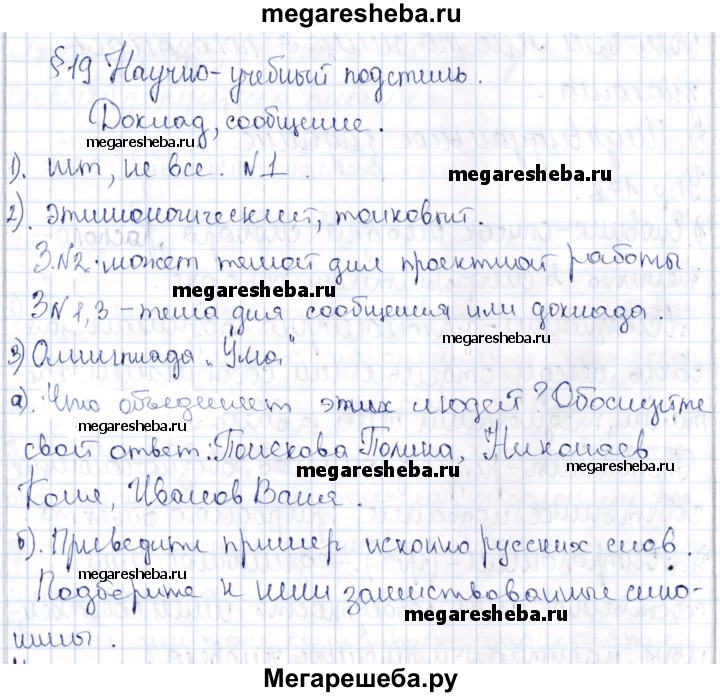 megaresheba.ru
§19 Научно-учебный подстиль.
Доклад, сообщение.
megaresheba.ru
megaresheba.ru
1). нет, не все. N1.
megaresheba.ru
2). этимологический, толковый.
З.N2. может темой для проектной работы
megaresheba.ru
ЗN1,3 – тема для сообщения или доклада.
megaresheba.ru
3) Олимпиада "Ума"
megaresheba.ru
а). Что объединяет этих людей? Обоснуйте
свой ответ: Полина, Николаев
megaresheba.ru
megaresheba.ru
Коля, Иванов Ваня.
б). Приведите пример исконно русских слов.
megaresheba.ru
Подберите к ним заимствованные сино-
megaresheba.ru
нимы.
megaresheba.ru
Мегарешеба.ру